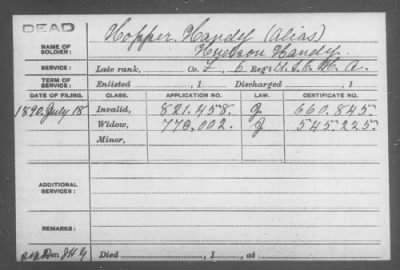 DEAD
Hopper, Handy (Alias)
NAME OF SOLDIER: Handy
SERVICE: Late rank, Co. L, 6 Reg't U.S.C. H. A.
TERM OF SERVICE: Enlisted , 1 Discharged , 1
DATE OF FILING. CLASS. APPLICATION NO. LAW. CERTIFICATE NO.
1890 July 18 Invalid, 821.458. 660.845.
Widow, 778,002. 545.225.
Minor,
ADDITIONAL SERVICES:
REMARKS:
Died , 1 , at